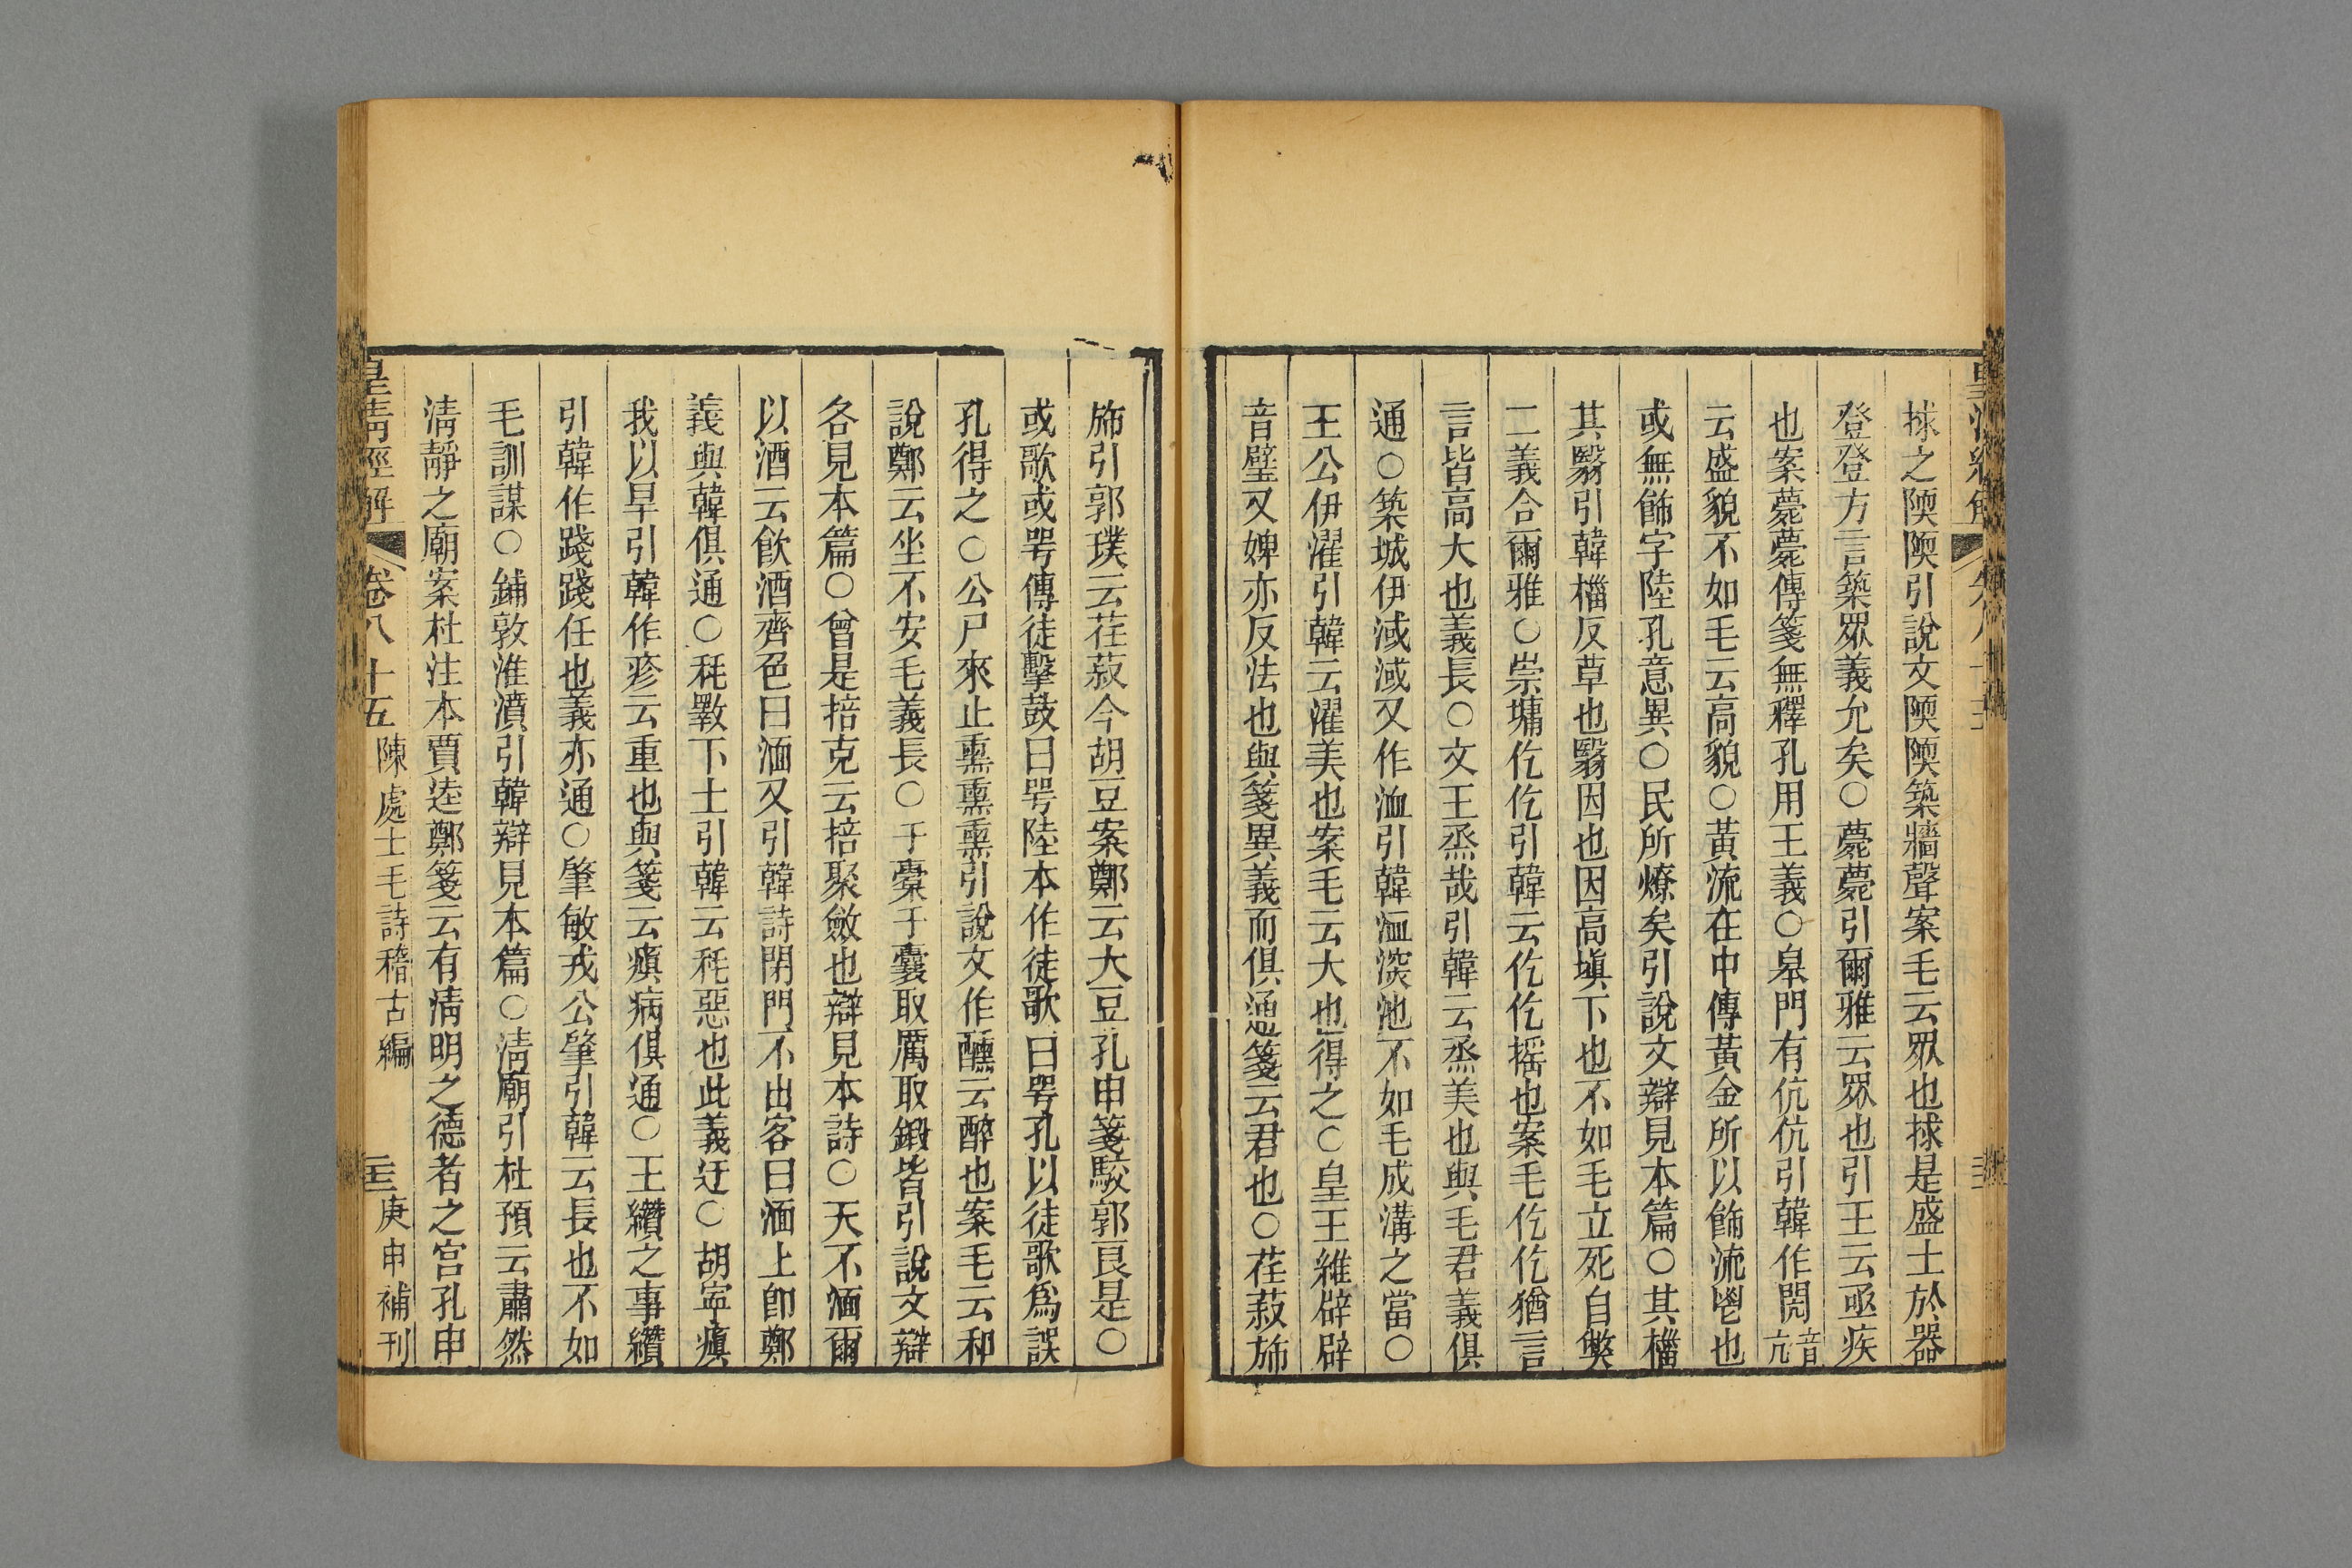 捄之陾陾引說文陾陾築牆聲案毛云眾也捄是盛土於器
登登方言築眾義允矣○薨薨引爾雅云眾也引王云亟疾
也案薨薨傳箋無釋孔用王義○臯門有伉伉引韓作閌音亢
云盛貌不如毛云高貌○黃流在中傳黃金所以飾流鬯也
或無飾字陸孔意異○民所燎矣引說文辯見本篇○其椔
其翳引韓椔反草也翳因也因高塡下也不如毛立死自斃
二義合爾雅○崇墉仡仡引韓云仡仡搖也案毛仡仡猶言
言皆高大也義長○文王烝哉引韓云烝美也與毛君義俱
通○築城伊淢淢又作洫引韓洫深池不如毛成溝之當○
王公伊濯引韓云濯美也案毛云大也得之○皇王維辟辟
音璧又婢亦反法也與箋異義而俱通箋云君也○荏菽斾
斾引郭璞云荏菽今胡豆案鄭云大豆孔申箋駮郭良是○
或歌或咢傳徒擊鼓曰咢陸本作徒歌曰咢孔以徒歌爲誤
孔得之○公尸來止熏熏熏引說文作醺云醉也案毛云和
說鄭云坐不安毛義長○于橐于囊取厲取鍛皆引說文辯
各見本篇○曾是掊克云掊聚斂也辯見本詩○天不湎爾
以酒云飮酒齊色曰湎又引韓詩閉門不出客曰湎上卽鄭
義與韓俱通○秏斁下土引韓云秏惡也此義迂○胡寧瘨
我以旱引韓作疹云重也與箋云瘨病俱通○王纘之事纘
引韓作踐踐任也義亦通○肇敏戎公肇引韓云長也不如
毛訓謀○鋪敦淮濆引韓辯見本篇○淸廟引杜預云肅然
淸靜之廟案杜注本賈逵鄭箋云有淸明之德者之宮孔申
皇淸經解 卷八十五 陳處士毛詩稽古編 三 庚申補刊